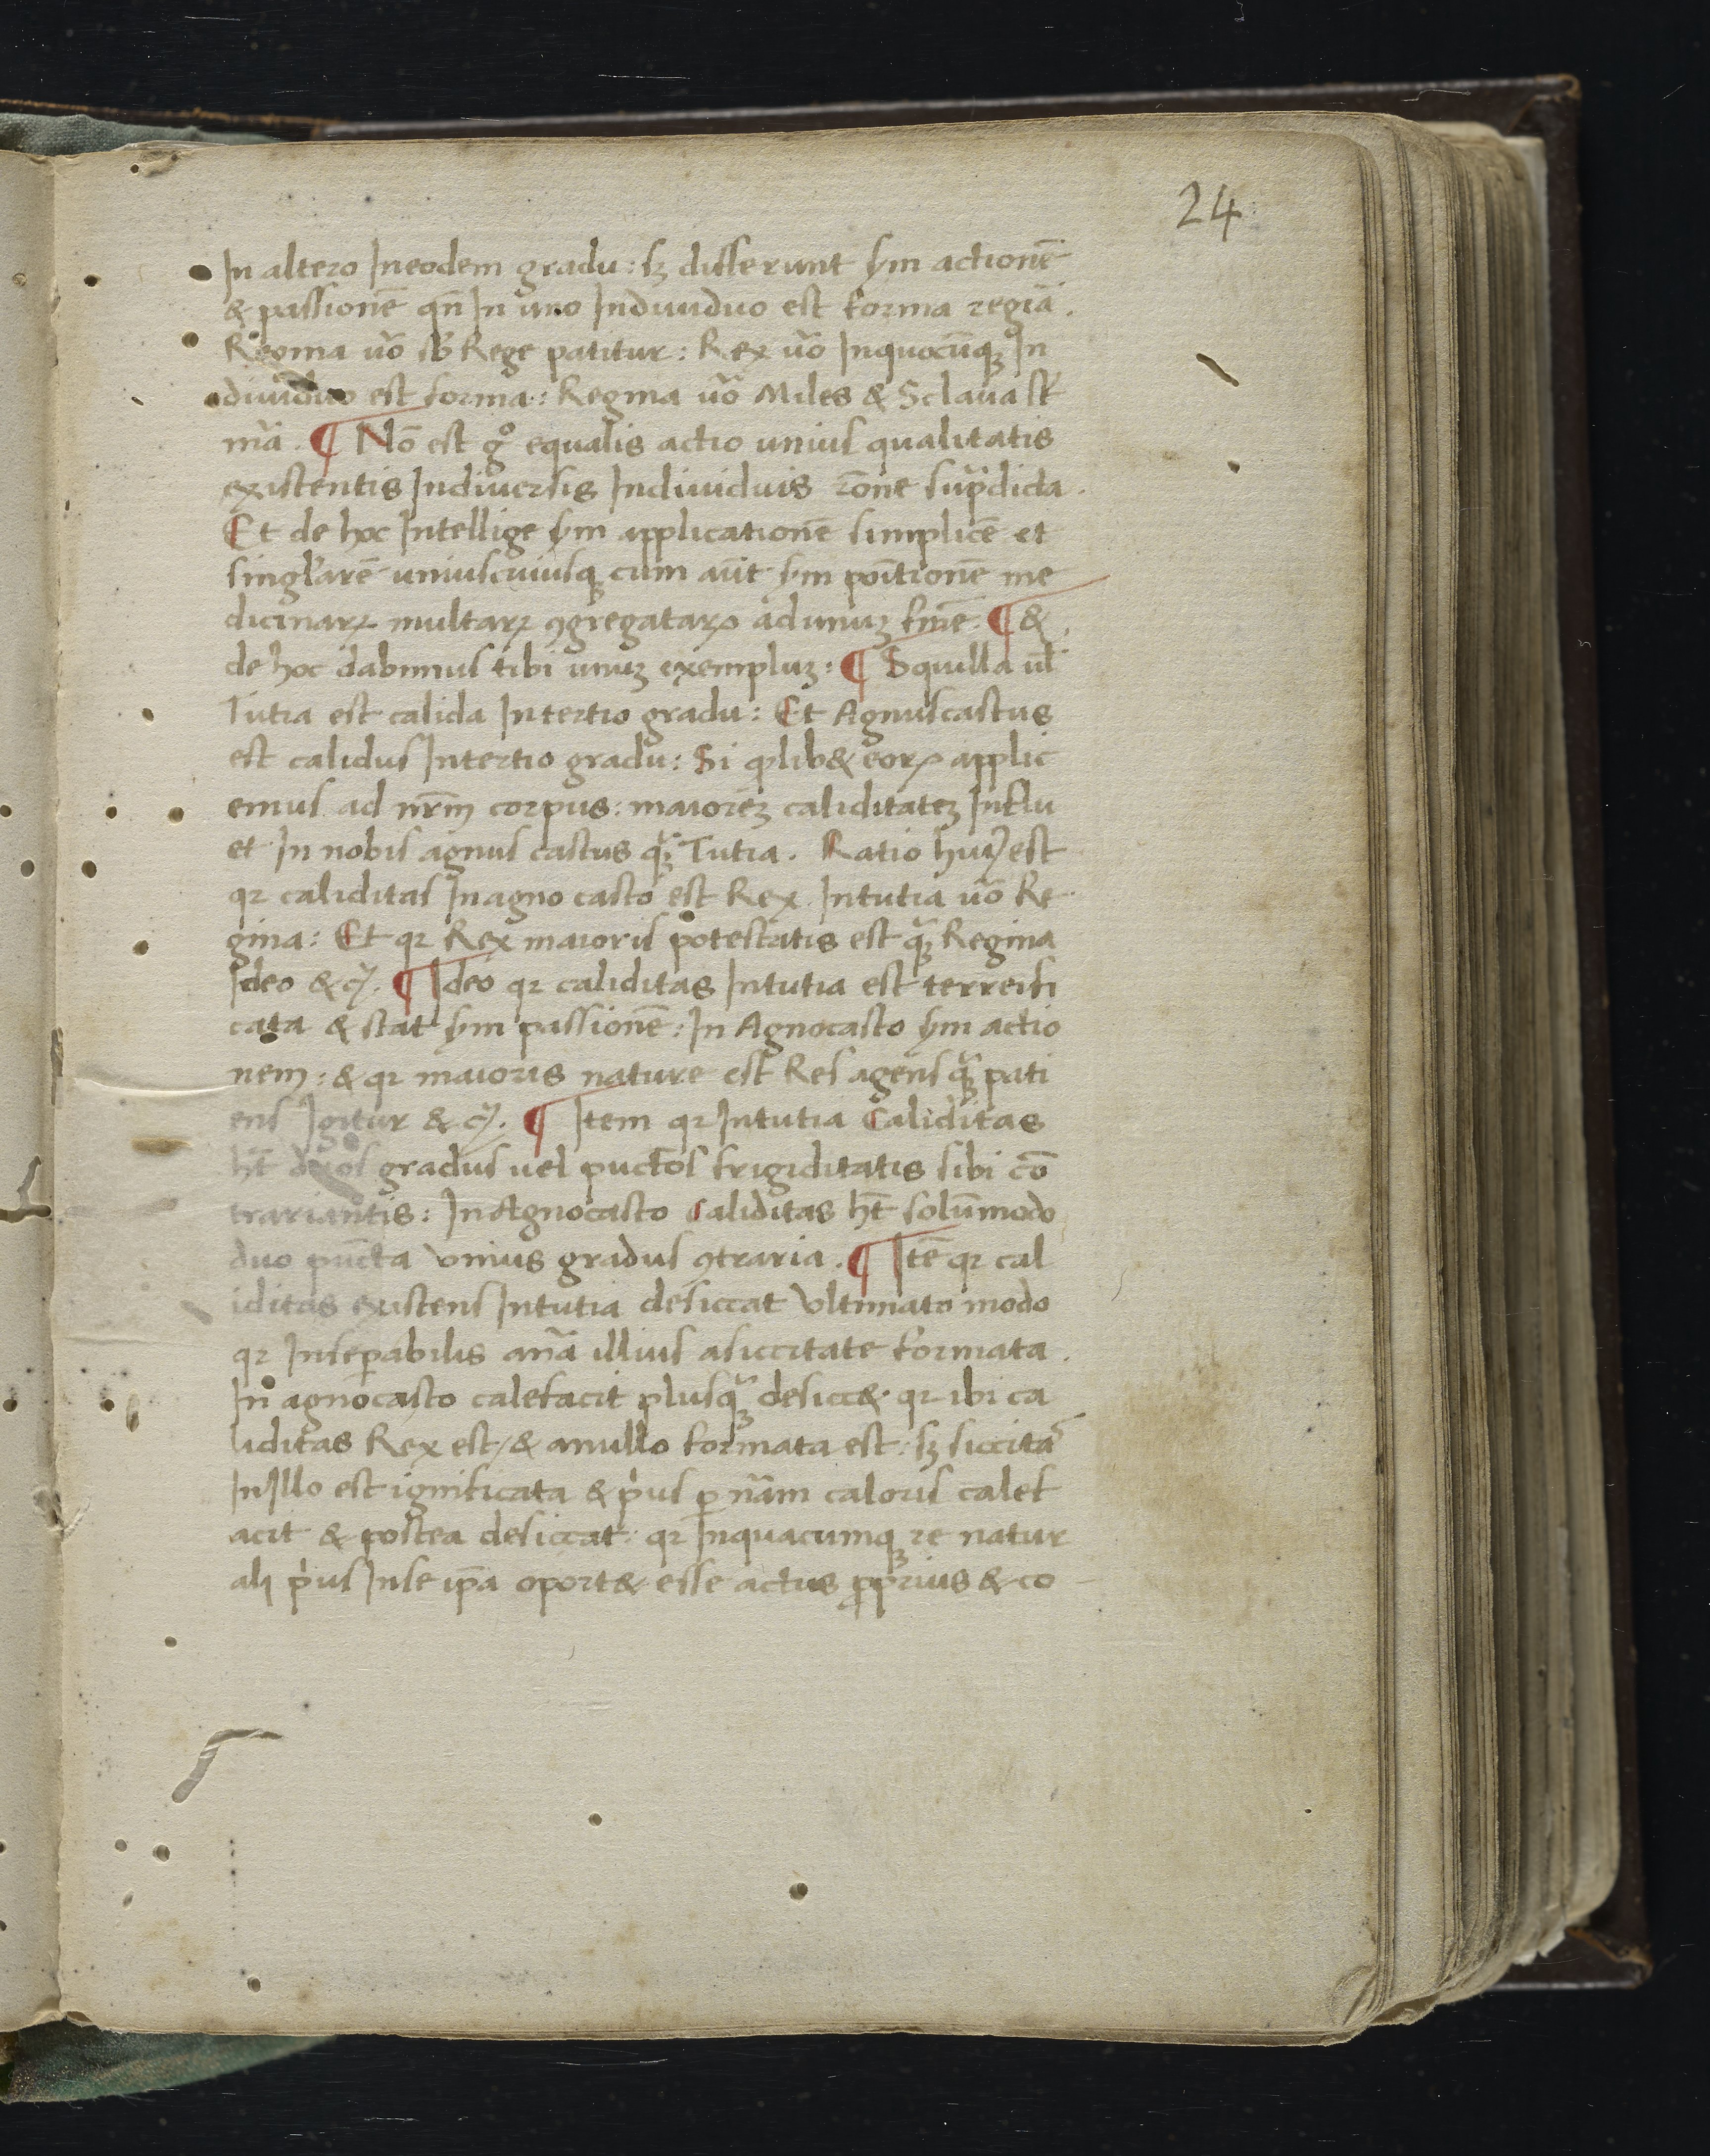 24
In altero Ineodem gradu: sꝫ differunt sm̄ actionē
& passionē qn̄ In uno Indiuiduo est forma regia.
Regina ūo sb Rege patitur: Rex ūo Inquocūqꝫ In
diuiduo est forma: Regina ūo Miles & Sclaua st̄
mā. ¶ Nō est gͦ equalis actio unius qualitatis
existentis Indiuersis Indiuiduis rōne sup̄dicta.
Et de hoc Intellige sm̄ applicationē simplicē et
singl'arē uniuscuiusqꝫ cum aūt sm̄ poītionē me
dicinaꝝ multaꝝ ꝯgregataꝝ adunuꝫ finē. ¶ &
de hoc dabimus tibi unuꝫ exempluꝫ: ¶ Squilla ul̄
Tutia est calida Intertio gradu: Et Agnuscastus
est calidus Intertio gradu: Si qlib& eoꝝ applic
emus ad nr̄m corpus: maiorēꝫ caliditateꝫ Influ
et In nobis agnus castus qꝫ̄ Tutia. Ratio huiꝰ est
qꝛ caliditas Inagno casto est Rex. Intutia ūo Re
gina: Et qꝛ Rex maioris potestatis est qꝫ̄ Regina
Ideo & cꝭ. ¶ Ideo qꝛ caliditas Intutia est terreifi
cata & stat sm̄ passionē: In Agnocasto sm̄ actio
nem: & qꝛ maioris nature est Res agens qꝫ̄ pati
ens Igitur & cꝭ. ¶ Item qꝛ Intutia Caliditas
ht̄ duos gradus uel puctos frigiditatis sibi cō
trariantis: InAgnocasto Caliditas ht̄ solūmodo
duo pūcta Vnius gradus ꝯtraria. ¶ Itē qꝛ cal
iditas existens Intutia desiccat Vltimato modo
qꝛ Inseꝑabilis anā illius asiccitate formata.
In agnocasto calefacit plusqꝫ̄ desicc& qꝛ ibi ca
liditas Rex est / & anullo formata est: sꝫ siccitaˢ
InIllo est ignificata & pⁱus ꝑ nām caloris calef
acit & postea desiccat: qꝛ Inquacumqꝫ re natur
ali pⁱus Inse ip̄a oport& esse actus ꝓprius & co